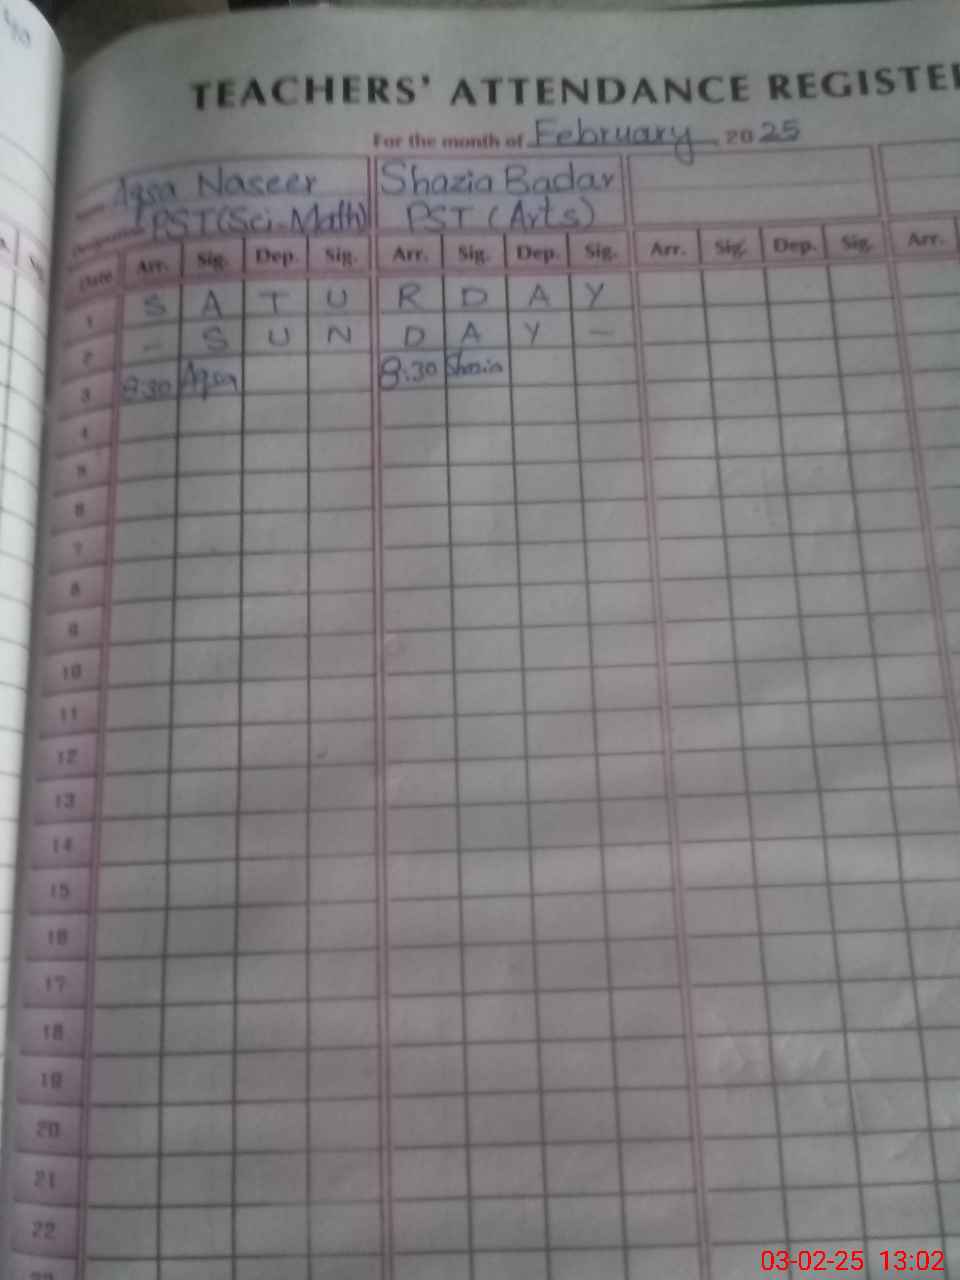 TEACHERS' ATTENDANCE REGISTER
For the month of February 2025
Name Aqsa Naseer Shazia Badar
Designation PST(Sci-Math) PST (Arts)
Date Arr. Sig. Dep. Sig. Arr. Sig. Dep. Sig. Arr. Sig. Dep. Sig. Arr.
1 S A T U R D A Y
2 - S U N D A Y -
3 8:30 Aqsa 8:30 Shazia
4
5
6
7
8
9
10
11
12
13
14
15
16
17
18
19
20
21
22
03-02-25 13:02